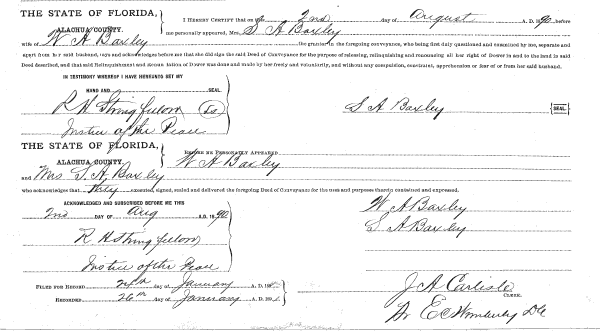 THE STATE OF FLORIDA,
ALACHUA COUNTY.
I HEREBY CERTIFY that on 2nd day of August A. D. 1890, before
me personally appeared, Mrs. S A Baxley
wife of W A Baxley the grantor in the foregoing conveyance, who being first duly questioned and examined by me, separate and
apart from her said husband, says and acknowledges before me that she did sign the said Deed of Conveyance for the purpose of releasing, relinquishing and renouncing all her right of Dower in and to the land in said
Deed described, and that said Relinquishment and Renunciation of Dower was done and made by her freely and voluntarily, and without any compulsion, constraint, apprehension or fear of or from her said husband.
IN TESTIMONY WHEREOF I HAVE HEREUNTO SET MY
HAND AND SEAL
R H Stringfellow
S A Baxley SEAL
Justice of the Peace
THE STATE OF FLORIDA,
ALACHUA COUNTY.
BEFORE ME PERSONALLY APPEARED
W A Baxley
and Mrs S. A. Baxley
who acknowledges that they executed, signed, sealed and delivered the foregoing Deed of Conveyance for the uses and purposes therein contained and expressed.
ACKNOWLEDGED AND SUBSCRIBED BEFORE ME THIS
2nd DAY OF Aug A.D. 1890
W A Baxley
S A Baxley
R H Stringfellow
Justice of the Peace
FILED FOR RECORD 24th day of January A. D. 189
RECORDED 26th day of January A. D. 189
J A Carlisle
CLERK.
Pr E C Wimberly DC